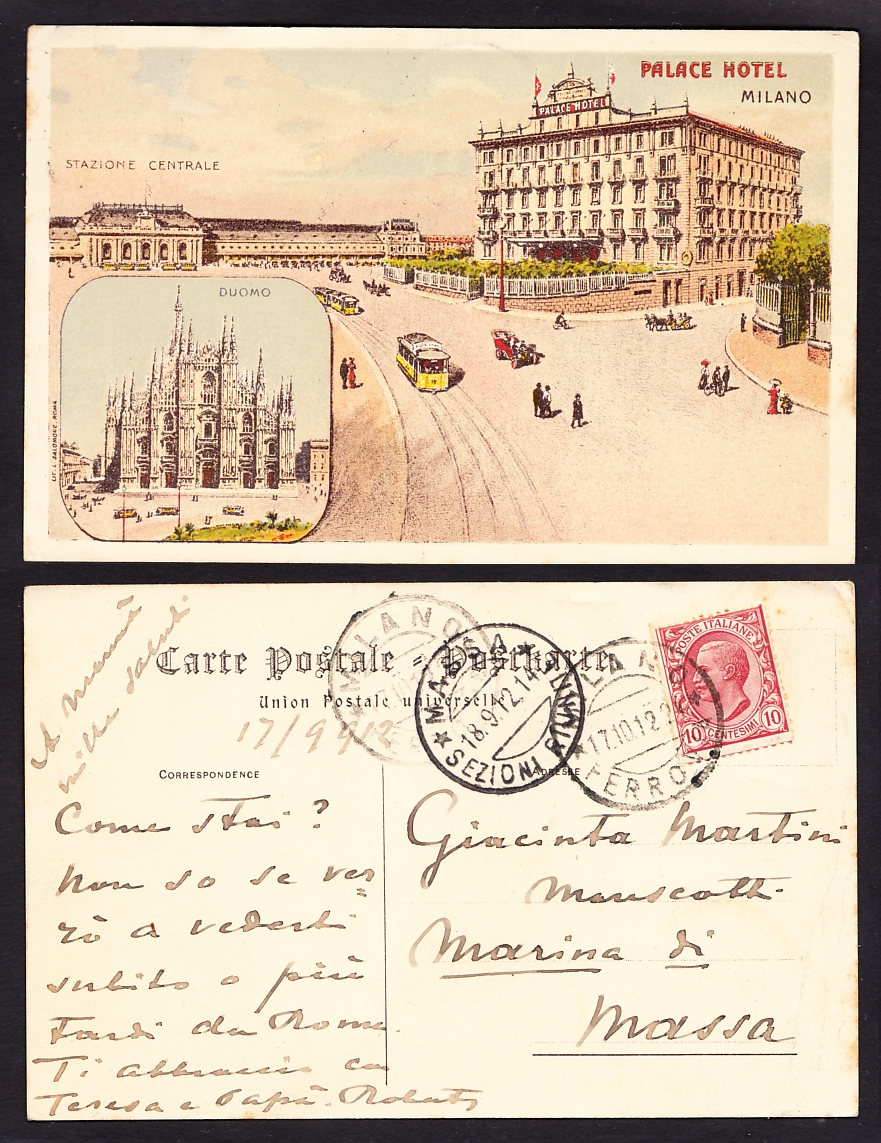 PALACE HOTEL
MILANO
PALACE HOTEL
STAZIONE CENTRALE
DUOMO
LIT. I. SALOMONE. ROMA
A mammà
mille saluti
Carte Postale = Postkarte
Union Postale universelle
MILANO
MASSA
18.9.12.14
SEZIONI RIUNITE
MILANO
17.10.12.2
FERROVIA
POSTE ITALIANE
10 CENTESIMI 10
17/9 912
CORRESPONDENCE
ADRESSE
Come stai?
Non so se ver=
rò a vederti
subito o più
tardi da Roma.
Ti abbraccio con
Teresa e Papà. Roberto
Giacinta Martini
Marescotti
Marina di
Massa